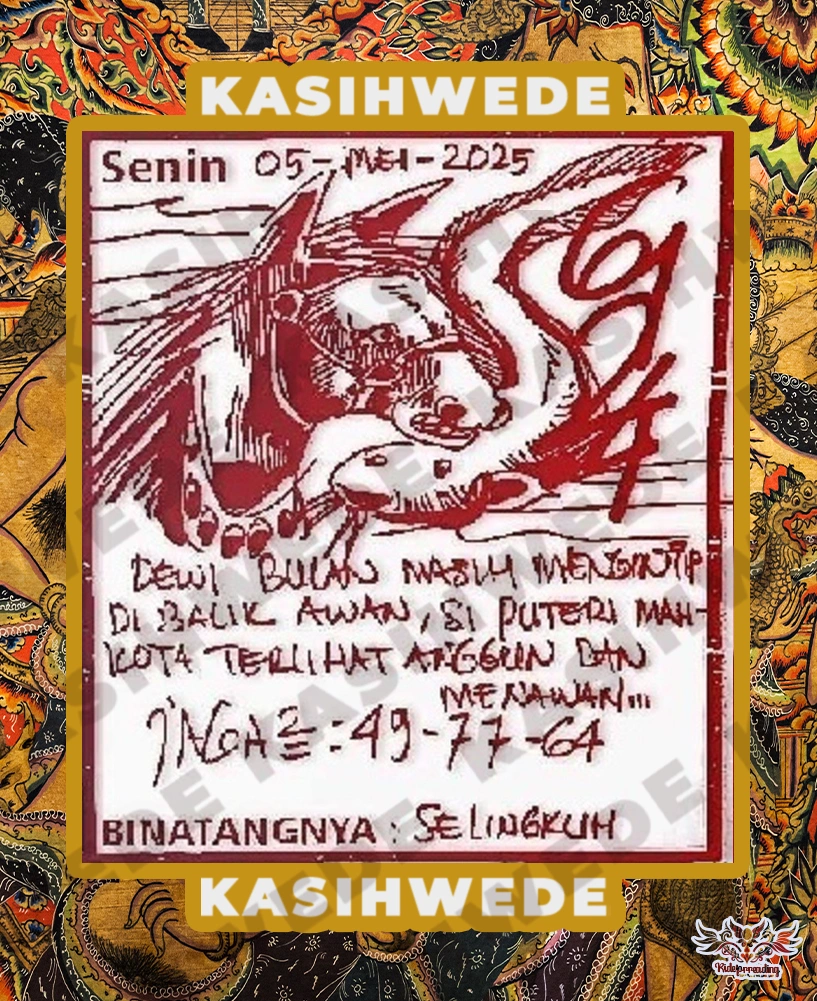 KASIHWEDE
Senin 05-MEI-2025
694
DEWI BULAN MASIH MENGINTIP
DI BALIK AWAN, SI PUTERI MAH-
KOTA TERLIHAT ANGGUN DAN
MENAWAN...
INGA2=: 49-77-64
BINATANGNYA: SELINGKUH
KASIHWEDE